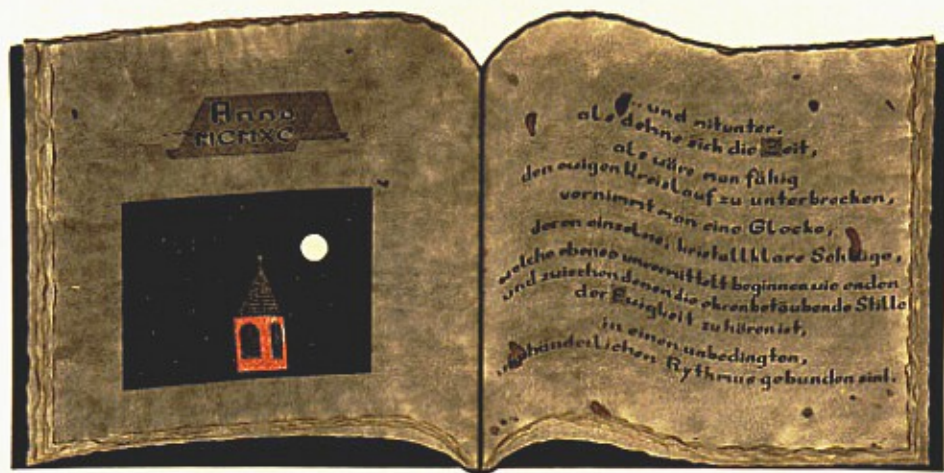 Anno
MCMXC
... und mitunter,
als dehne sich die Zeit,
als wäre man fähig
den ewigen Kreislauf zu unterbrechen,
vernimmt man eine Glocke,
deren einzelne, kristallklare Schläge,
welche ebenso unvermittelt beginnen wie enden
und zwischen denen die ohrenbetäubende Stille
der Ewigkeit zu hören ist,
in einen unbedingten,
Rythmus gebunden sind.